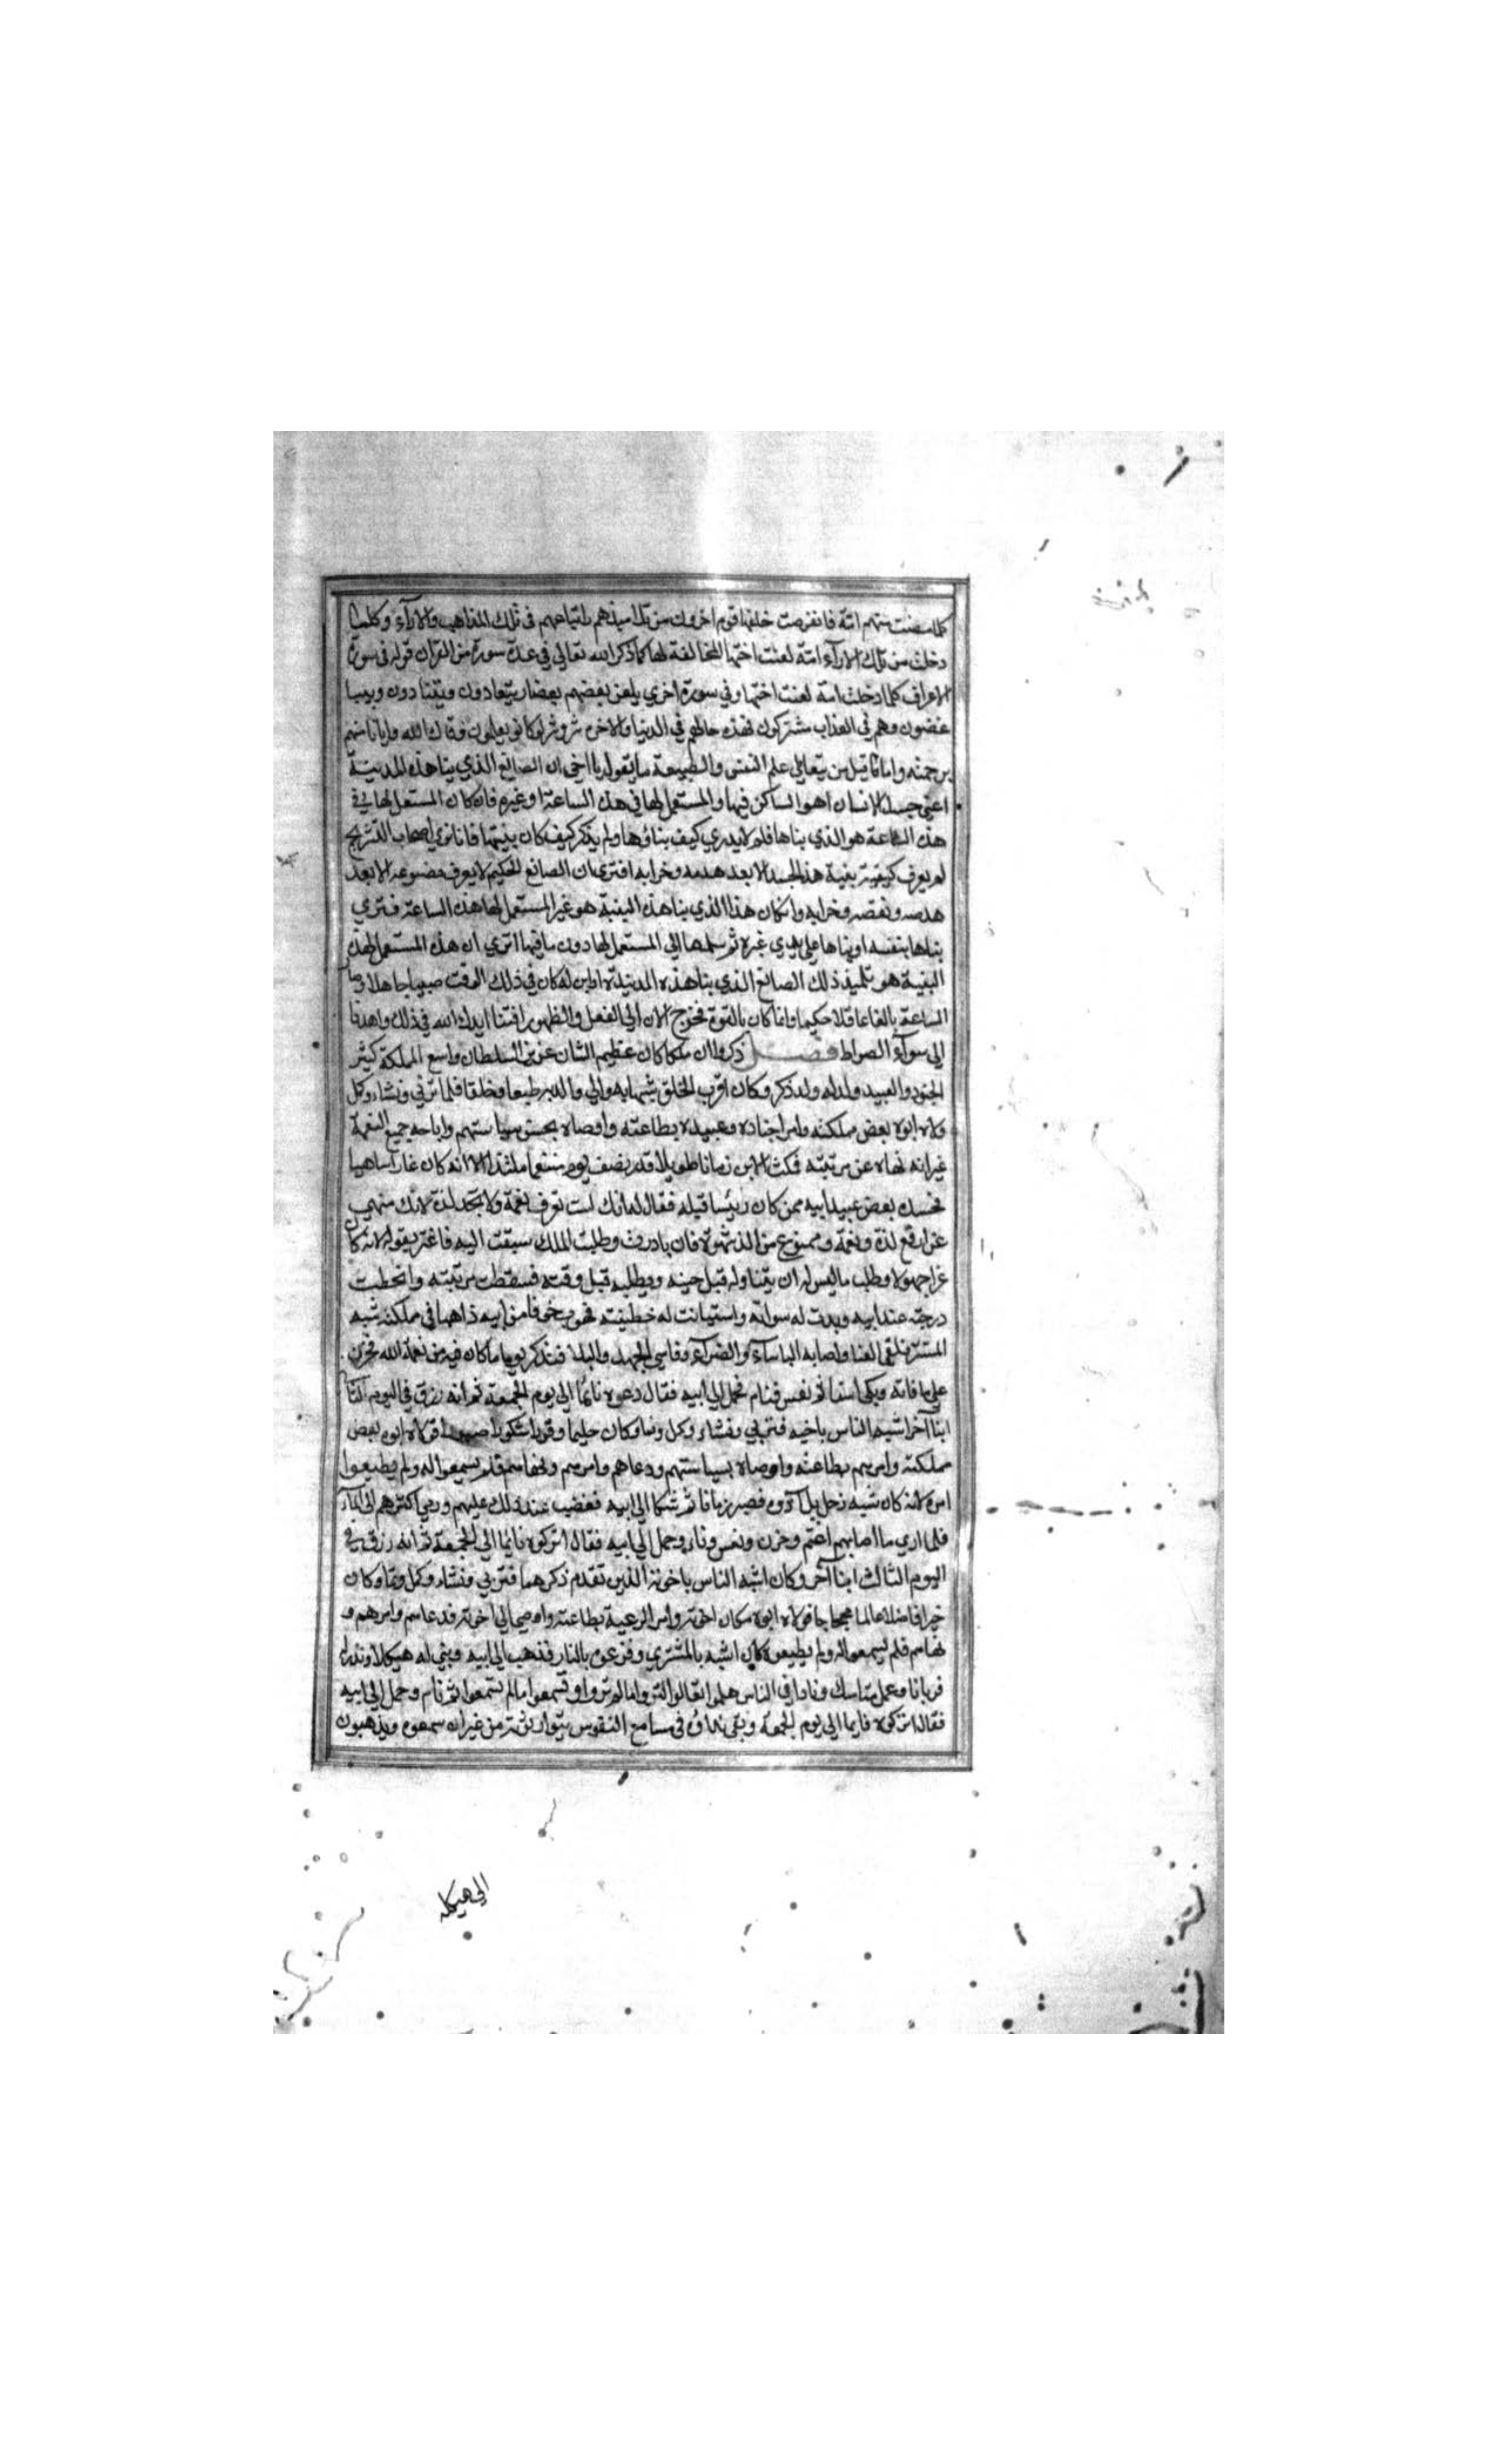 كلما مضت منهم امة فانقرضت خلفها قوم اخرون من تلاميذهم باتباعهم في تلك المذاهب والاراء وكلما
دخلت من تلك الاراء امة لعنت اختها المخالفة لها كما ذكر الله تعالي في عدة سورة من القران قوله في سورة
الاعراف كلما دخلت امة لعنت اختها وفي سورة اخري يلعن بعضهم بعضا يتعادون ويتنادون ويبا
غضون وهم في العذاب مشتركون فهذه حالهم في الدنيا والاخرة شر وشر لو كانوا يعلمون وقاك الله وايانا منهم
برحمته واما ما قيل من يتعاطي علم النفس والطبيعة ما يقول يا اخي ان الصانع الذي بنا هذه المدينة
اعني جسد الانسان اهو الساكن فيها والمستعمل لها في هذه الساعة او غيره فان كان المستعمل لها في
هذه الساعة هو الذي بناها فلم لا يدري كيف بناؤها ولم يذكر كيف كان بنيتها فانا نري اصحاب التشريح
لم يعرف كيفية بنية هذا الجسد الا بعد هدمه وخرابه افتري ان الصانع الحكيم لا يعرف مصنوعه الا بعد
هدمه ونقضه وخرابه وان كان هذا الذي بنا هذه البنية هو غير المستعمل لها هذه الساعة فتري
بناها بنفسه او بناها علي يدي غيره ثم سلمها الي المستعمل لها دون ما فيها اتري ان هذه المستعمل لهذه
البنية هو تلميذ ذلك الصانع الذي بنا هذه المدينة او ابن له كان في ذلك الوقت صبيا جاهلا وصار
الساعة بالغا عاقلا حكيما وانما كان بالقوة فخرج الان الي الفعل والظهور افتنا ايدك الله في ذلك واهدنا
الي سوآء الصراط فصل ذكروا ان ملكا كان عظيم الشان عزيز السلطان واسع المملكة كثير
الجنود والعبيد ولد له ولد ذكر وكان اقرب الخلق شبها به والي والديه طبعا وخلقا فلما تربي ونشاء وكمل
ولاه ابوه بعض مملكته وامر اجناده وعبيده بطاعته واوصاه بحسن سياستهم واباحه جميع النعمة
غير انه نهاه عن مرتبته فمكث الابن زمانا طويلا قدر نصف يوم متنعما ملتذا الا انه كان غارا ساهيا
فحسده بعض عبيد ابيه ممن كان رئيسا قبله فقال له انك لست تعرف نعمة ولا تجد لذة لانك منهي
عن ارفع لذة ونعمة وممنوع من الذ شهوة فان بادرت وطلبت الملك سبقت اليه فاغتر بقوله لانه كان
غرا جهولا وطلب ما ليس له ان يتناوله قبل حينه ويطلبه قبل وقته فسقطت مرتبته وانحطت
درجته عند ابيه وبدت له سواته واستبانت له خطيئته فهرب خوفا من ابيه ذاهبا في مملكته شبه
المستتر فلقي العنا واصابه الباسآء والضرآء وقاسي الجهد والبلا فتذكر يوما ما كان فيه من نعمة الله فحزن
علي ما فاته وبكي اسفا ثم نعس فنام فحمل الي ابيه فقال دعوه نائما الي يوم الجمعة ثم انه رزق في اليوم الثاني
ابنا آخر اشبه الناس باخيه فتربي ونشاء وكمل ونما وكان حليما وقورا شكورا صبورا فولاه ابوه بعض
مملكته وامرهم بطاعته واوصاه بسياستهم ودعاهم وامرهم ونهاهم فلم يسمعوا له ولم يطيعوا
امره لانه كان شبه زحل فصبر زمانا ثم شكا الي ابيه فغضب عند ذلك عليهم ورمي اكثرهم الي المآء
فلما اري ما اصابهم اغتم وحزن ونعس ونام وحمل الي ابيه فقال اتركوه نايما الي الجمعة ثم انه رزق في
اليوم الثالث ابنا آخر وكان اشبه الناس باخوته الذين تقدم ذكرهما فتربي ونشاء وكمل ونما وكان
خيرا فاضلا عالما محجاجا فولاه ابوه مكان اخوته وامر الرعية بطاعته واوصي الي اخوته فدعاهم وامرهم و
نهاهم فلم يسمعوا له ولم يطيعوه كان اشبه بالمشتري وفزعوه بالنار فذهب الي ابيه وبني له هيكلا ونذر له
قربانا وعمل مناسك ونادا في الناس هلموا تعالوا لتروا ما لم تروا وتسمعوا ما لم تسمعوا ثم نام وحمل الي ابيه
فقال اتركوه نايما الي يوم الجمعة وبقي نداؤه في مسامع النفوس يتوارثونه من غير ان سمعوه ويذهبون
الي هيكله